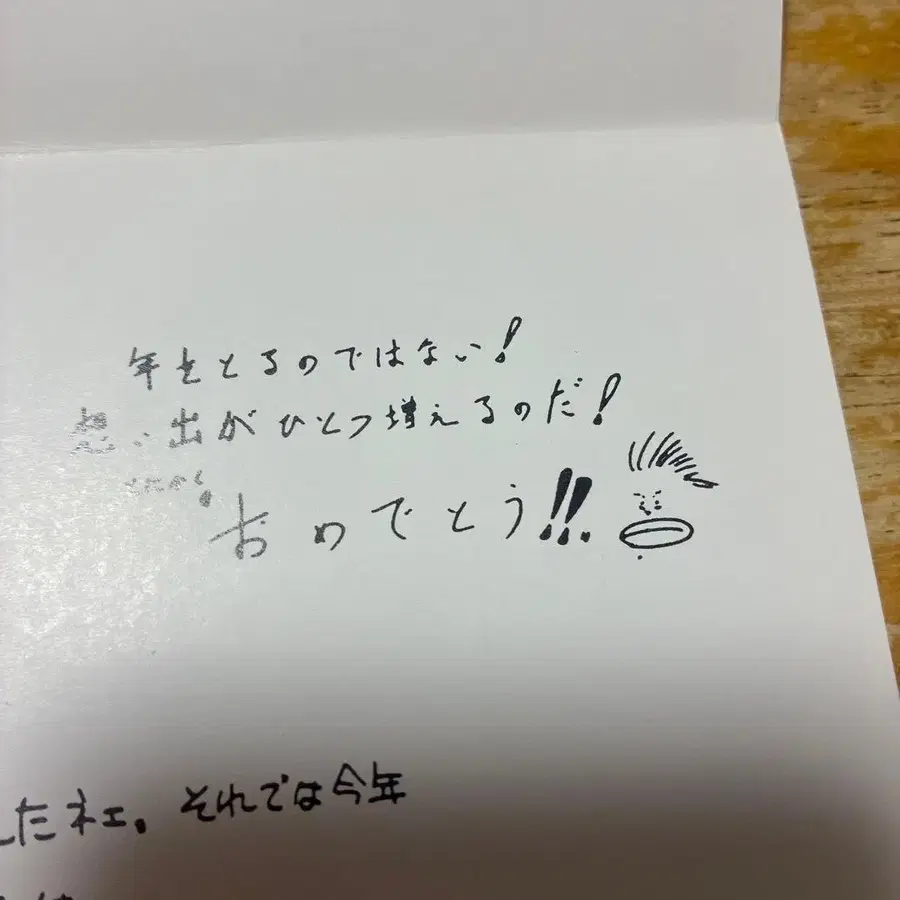 年をとるのではない!
想い出がひとつ増えるのだ!
とにかく
おめでとう!!
したネェ。それでは今年